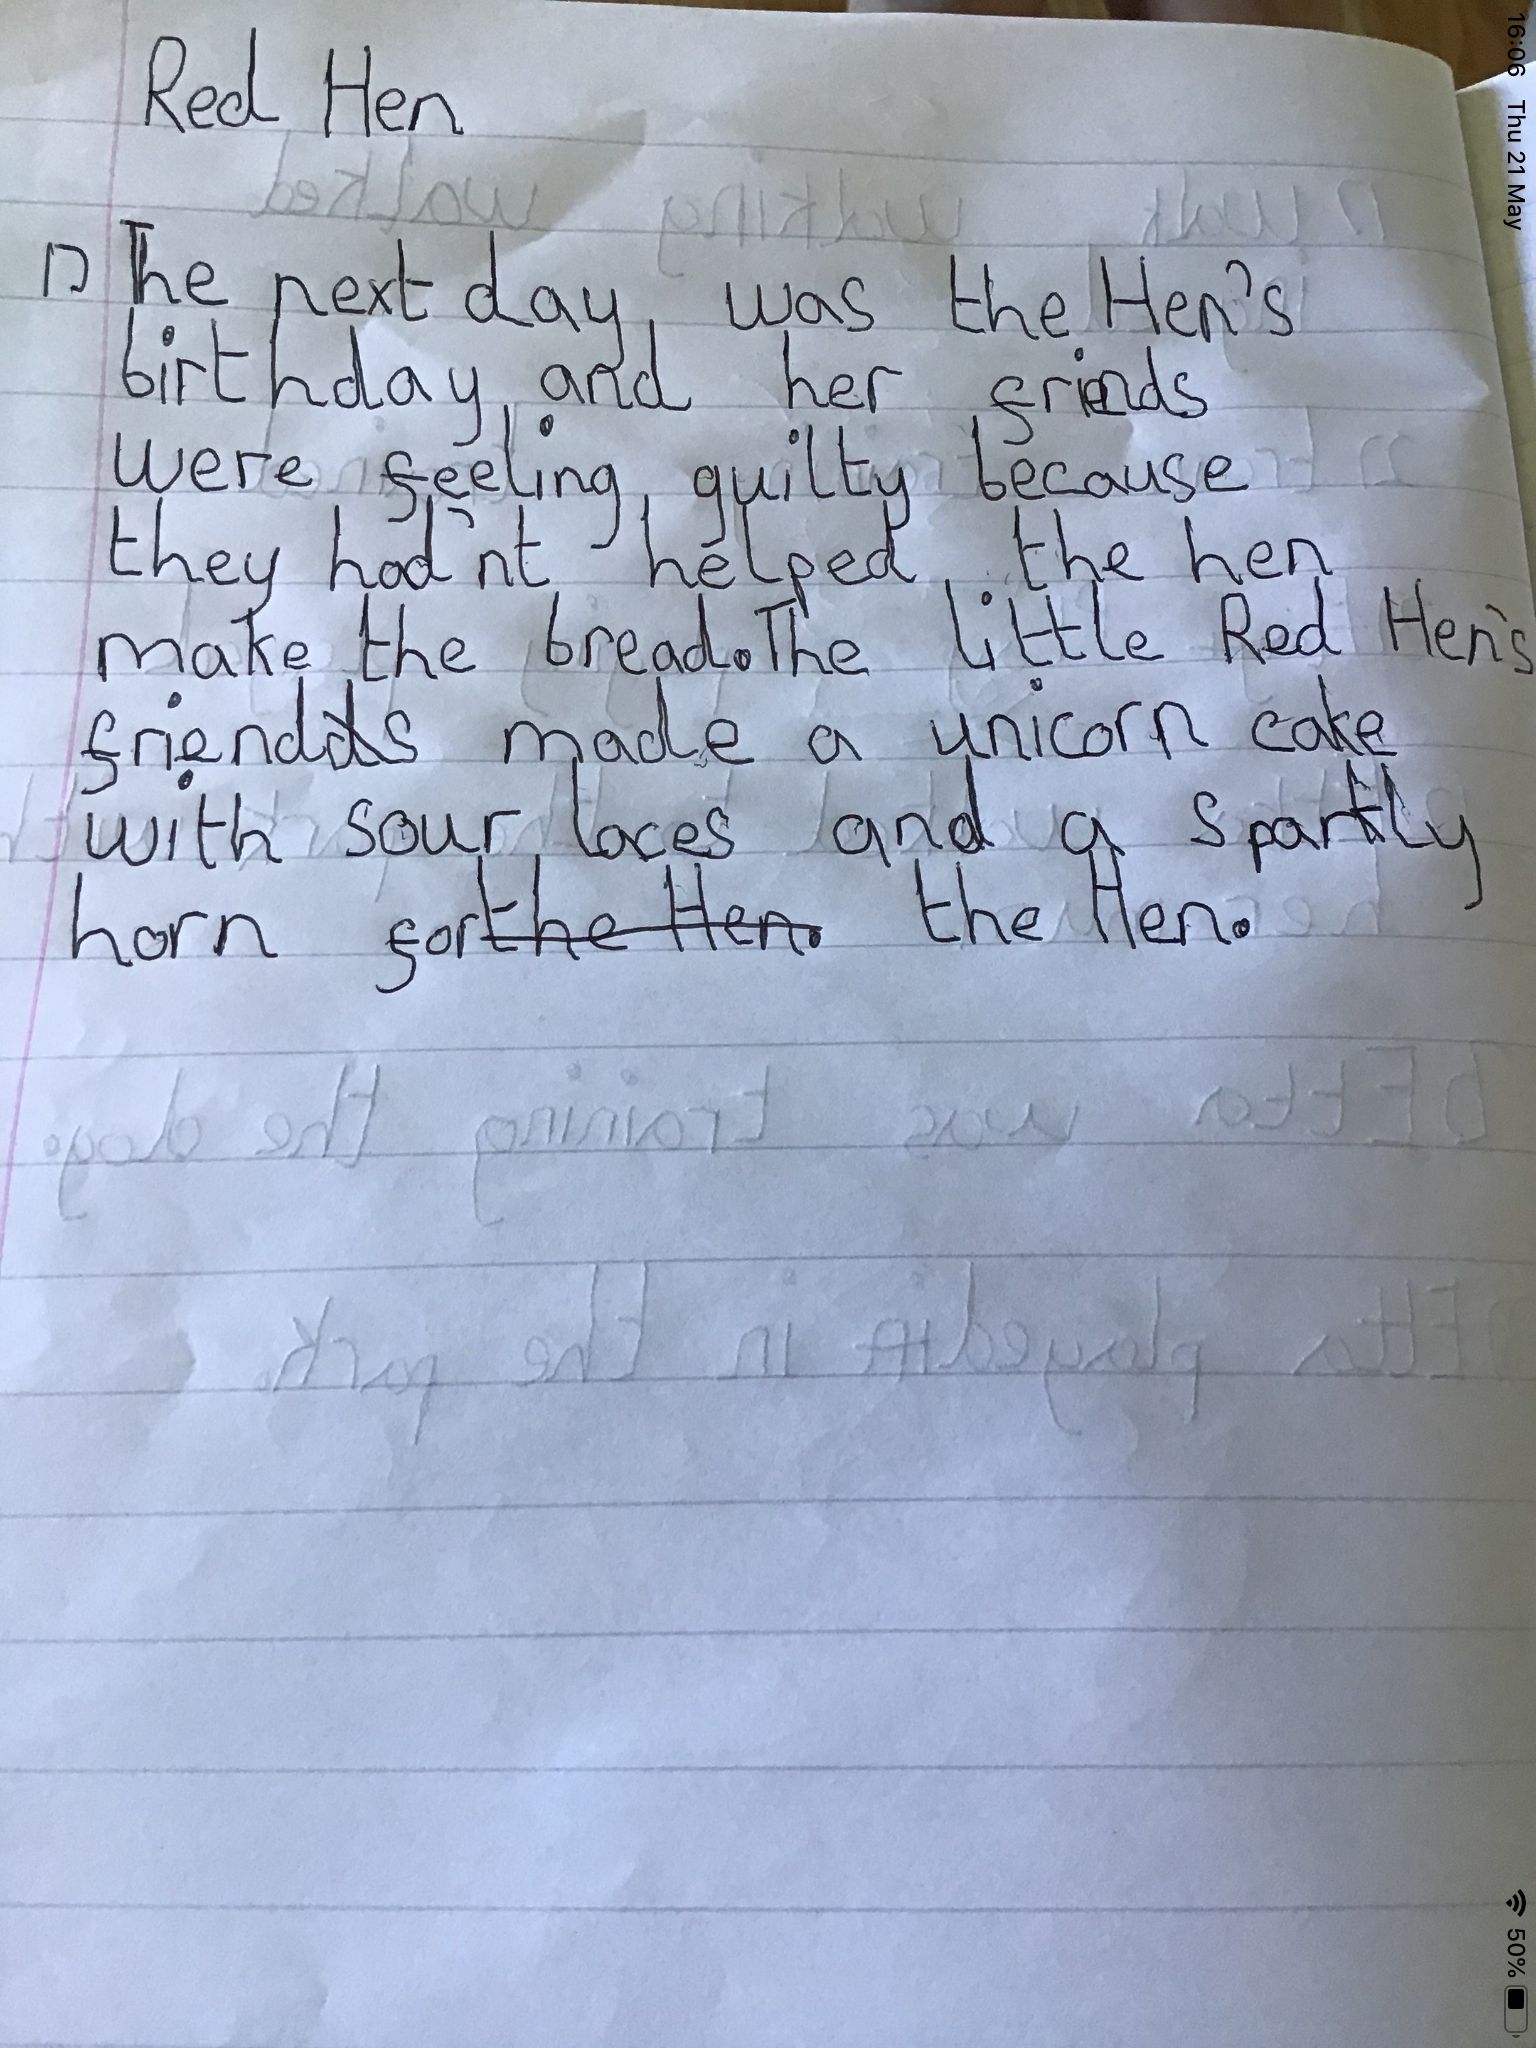 Red Hen
The next day was the Hen's
birthday and her friends
were feeling guilty because
they had'nt helped the hen
make the bread. The little Red Hen's
friends made a unicorn cake
with sour laces and a
horn for the Hen. the Hen.
16:06 Thu 21 May
50%